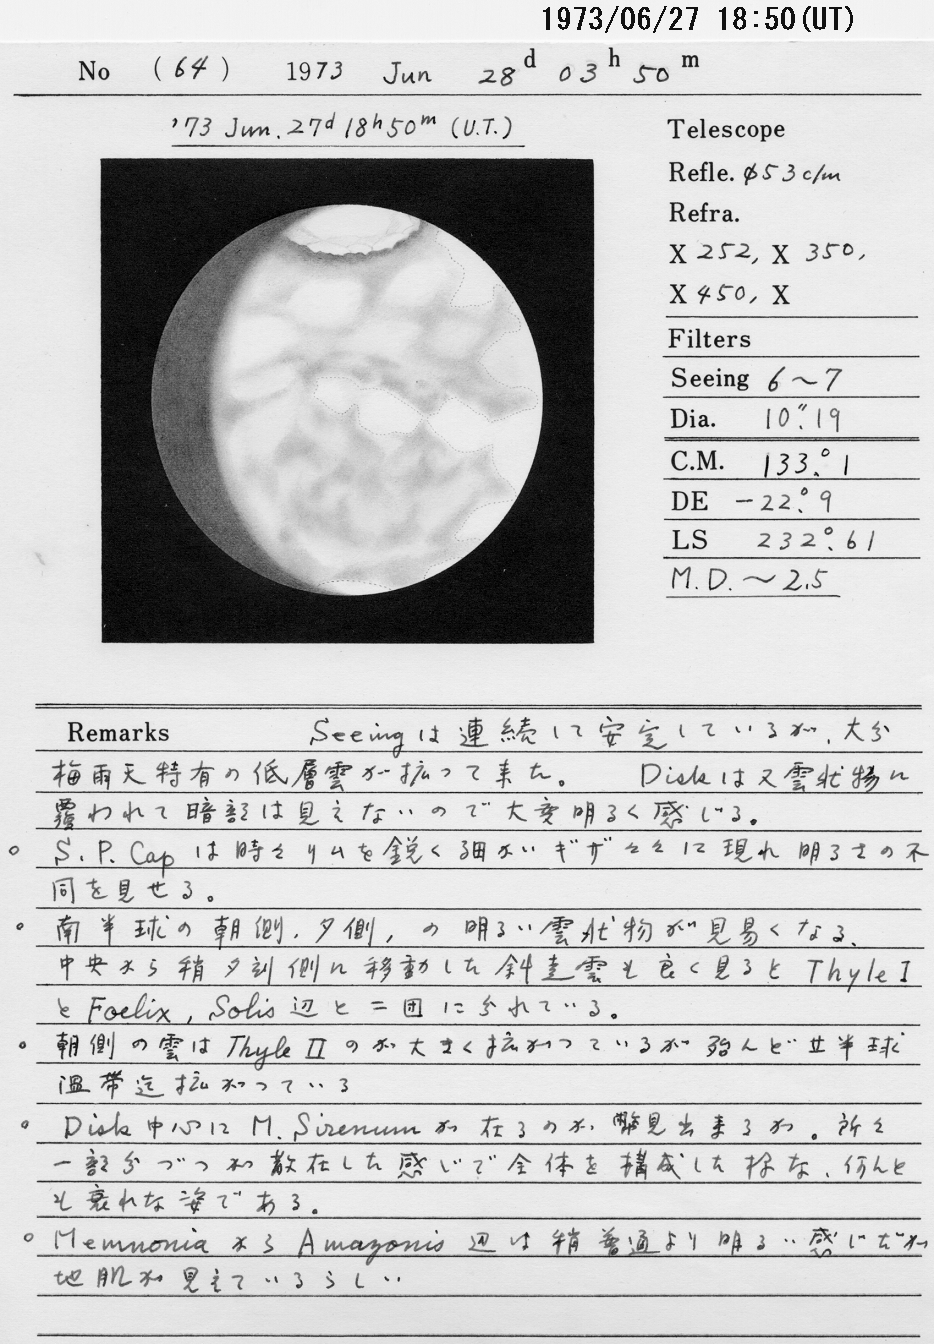 1973/06/27 18:50(UT)
No (64) 1973 Jun 28d 03h 50m
'73 Jun. 27d 18h50m (U.T.)
Telescope
Refle. φ53c/m
Refra.
X 252, X 350,
X 450, X
Filters
Seeing 6~7
Dia. 10".19
C.M. 133°.1
DE -22°.9
LS 232°.61
M.D. ~2.5
Remarks Seeingは連続して安定しているが、大分
梅雨天特有の低層雲が拡って来た。 Diskは又雲状物に
覆われて暗部は見えないので大変明るく感じる。
○ S.P.Capは時々リムを鋭く細かいギザギザに現れ明るさの不
同を見せる。
○ 南半球の朝側、夕側、の明るい雲状物が見易くなる、
中央から稍夕刻側に移動した斜走雲も良く見るとThyle I
とFoelix, Solis辺と二団に分れている。
○ 朝側の雲はThyle IIのが大きく拡がっているが殆んど北半球
温帯迄拡がっている
○ Disk中心にM. Sirenumが在るのが 見出来るが。所々
一部分づつが散在した感じで全体を構成した様な、何んと
も哀れな姿である。
○ MemnoniaからAmazonis辺は稍普通より明るい感じだが
地肌が見えているらしい